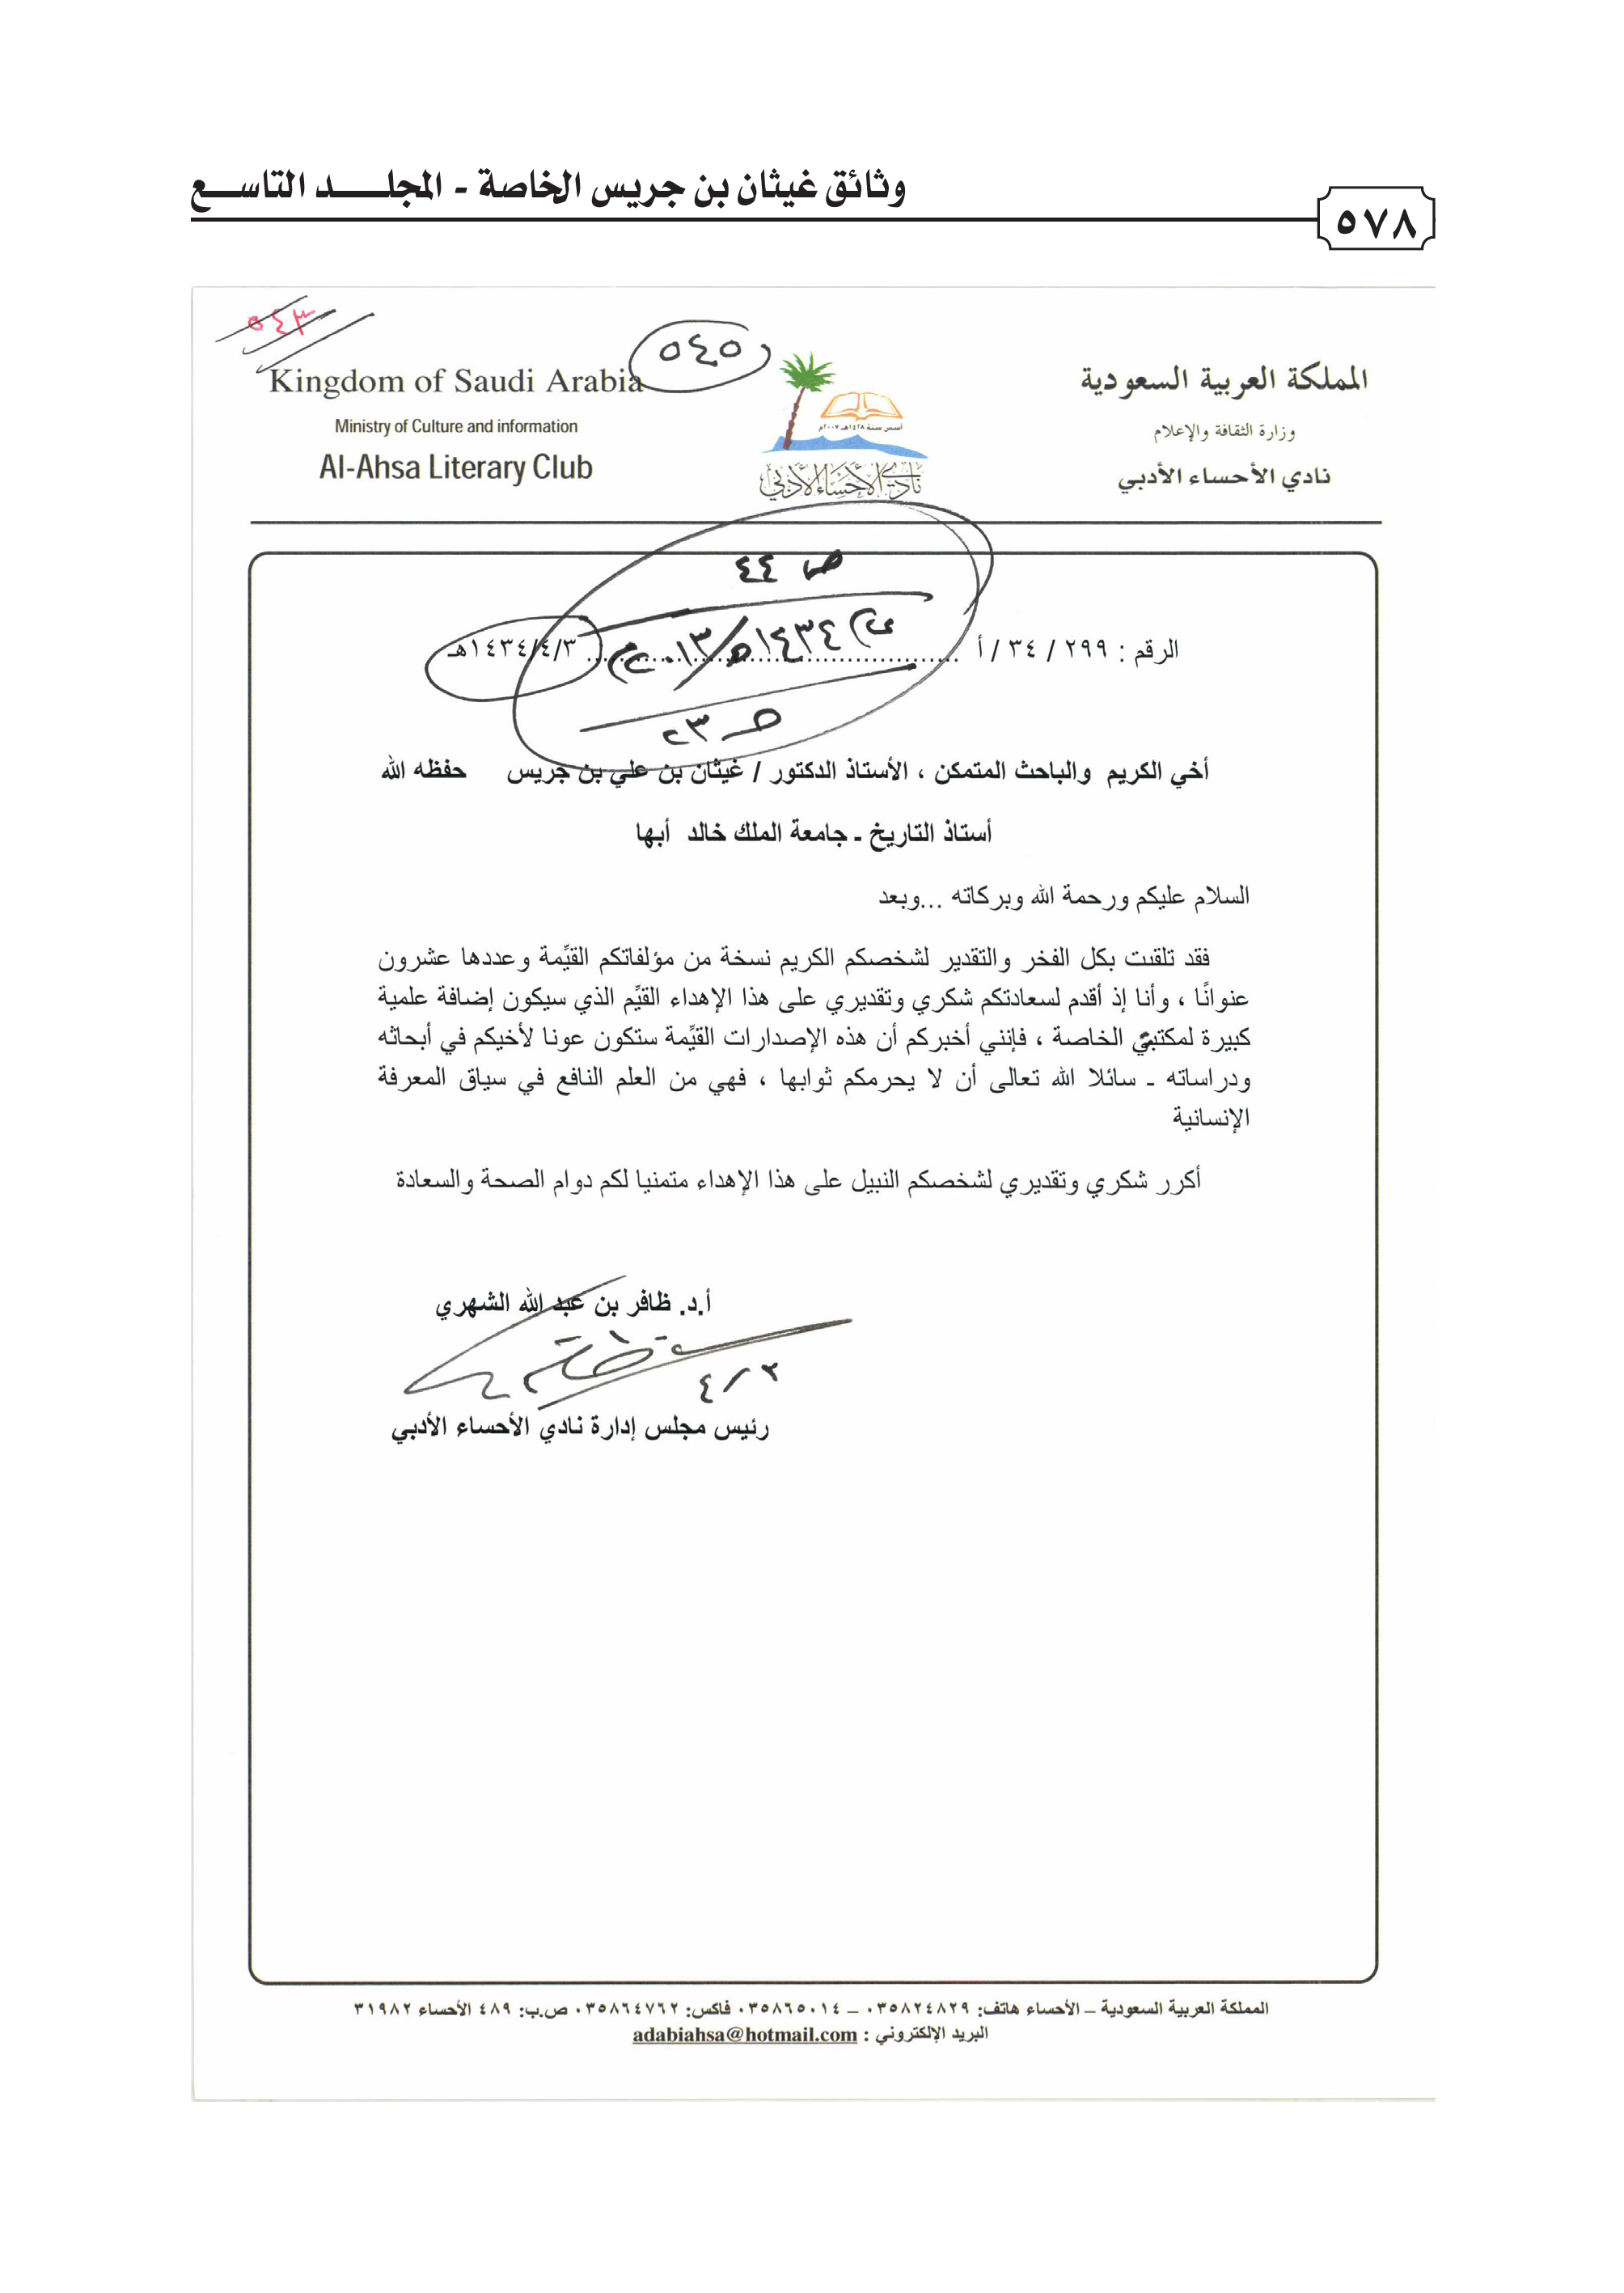 وثائق غيثان بن جريس الخاصة - المجلد التاسع
٥٧٨
٥٤٣
٥٤٥
المملكة العربية السعودية
وزارة الثقافة والإعلام
نادي الأحساء الأدبي
أسس سنة ١٤٢٨هـ ٢٠٠٧م
نادي الأحساء الأدبي
Kingdom of Saudi Arabia
Ministry of Culture and information
Al-Ahsa Literary Club
ص ٤٤
الرقم : ٢٩٩ / ٣٤ / أ ................................ ١٤٣٤/٤/٣هـ
أخي الكريم والباحث المتمكن ، الأستاذ الدكتور / غيثان بن علي بن جريس حفظه الله
أستاذ التاريخ ـ جامعة الملك خالد أبها
السلام عليكم ورحمة الله وبركاته ...وبعد
فقد تلقيت بكل الفخر والتقدير لشخصكم الكريم نسخة من مؤلفاتكم القيِّمة وعددها عشرون
عنوانًا ، وأنا إذ أقدم لسعادتكم شكري وتقديري على هذا الإهداء القيِّم الذي سيكون إضافة علمية
كبيرة لمكتبتي الخاصة ، فإنني أخبركم أن هذه الإصدارات القيِّمة ستكون عونا لأخيكم في أبحاثه
ودراساته ـ سائلا الله تعالى أن لا يحرمكم ثوابها ، فهي من العلم النافع في سياق المعرفة
الإنسانية
أكرر شكري وتقديري لشخصكم النبيل على هذا الإهداء متمنيا لكم دوام الصحة والسعادة
أ.د. ظافر بن عبد الله الشهري
رئيس مجلس إدارة نادي الأحساء الأدبي
المملكة العربية السعودية – الأحساء هاتف: ٠٣٥٨٢٤٨٢٩ – ٠٣٥٨٦٥٠١٤ فاكس: ٠٣٥٨٦٤٧٦٢ ص.ب: ٤٨٩ الأحساء ٣١٩٨٢
البريد الإلكتروني : adabiahsa@hotmail.com